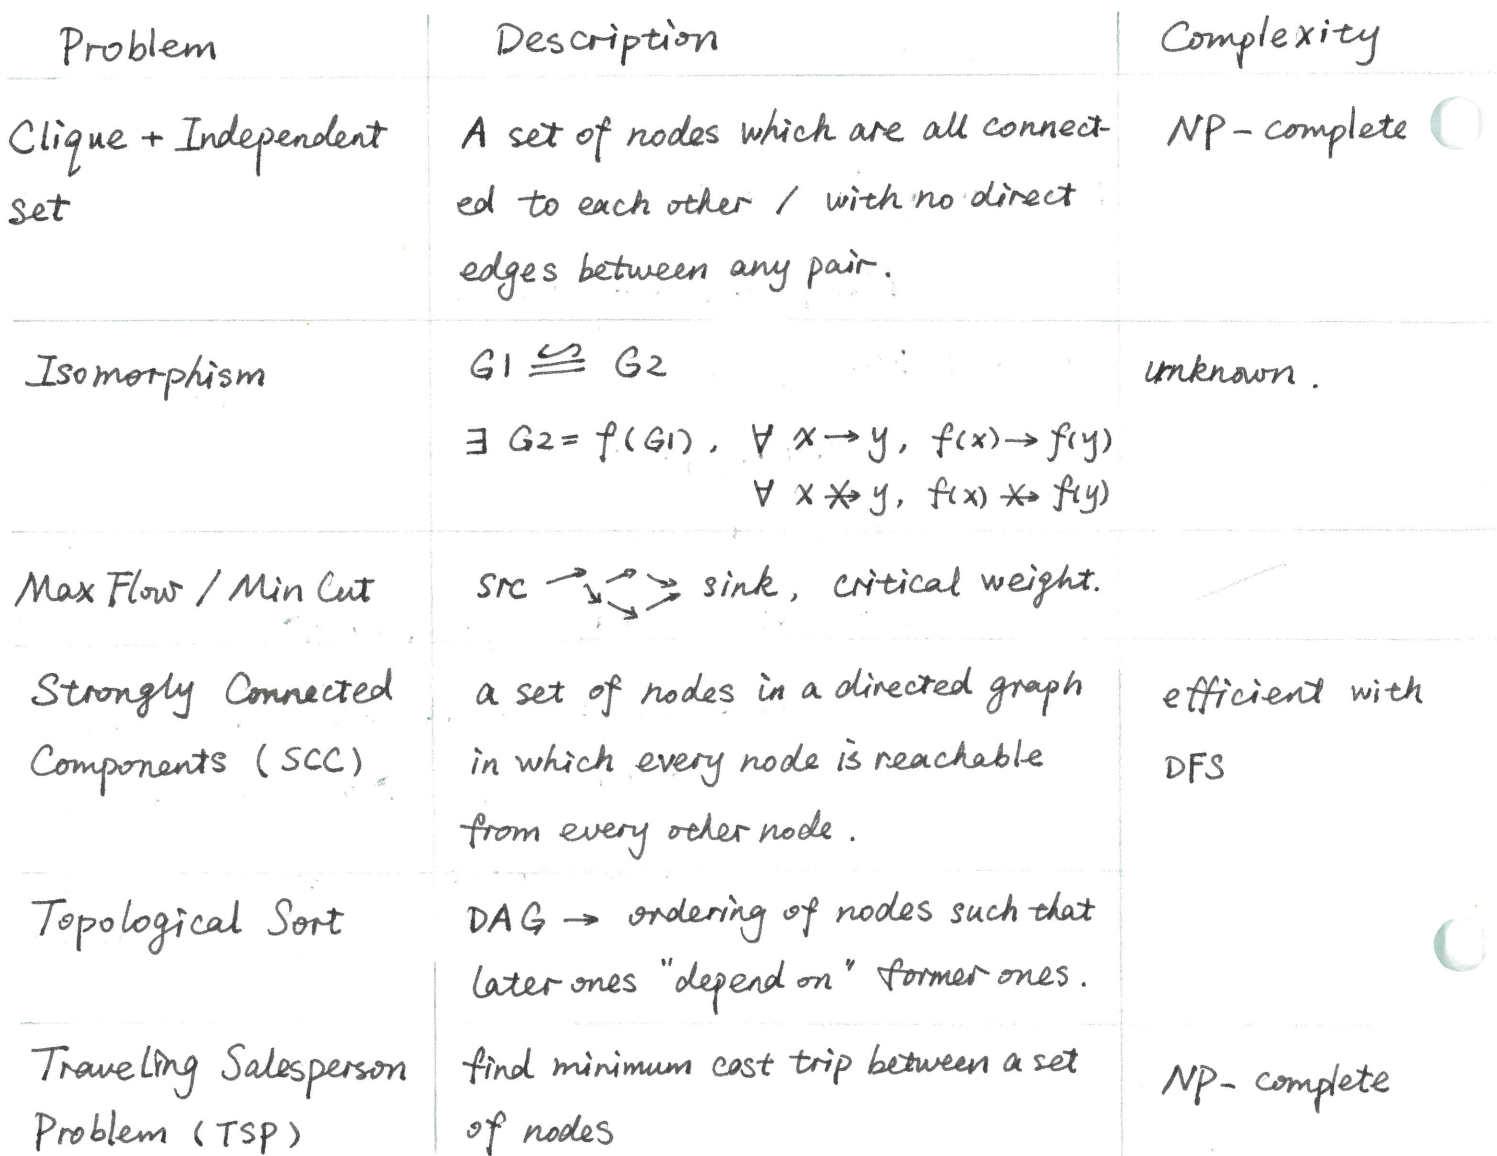 Problem Description Complexity
Clique + Independent
set
A set of nodes which are all connect-
ed to each other / with no direct
edges between any pair.
NP-complete
Isomorphism
G1 ≌ G2
∃ G2 = f(G1), ∀ x → y, f(x) → f(y)
∀ x ↛ y, f(x) ↛ f(y)
unknown.
Max Flow / Min Cut
src → sink, critical weight.
Strongly Connected
Components (SCC)
a set of nodes in a directed graph
in which every node is reachable
from every other node.
efficient with
DFS
Topological Sort
DAG → ordering of nodes such that
later ones "depend on" former ones.
Traveling Salesperson
Problem (TSP)
find minimum cost trip between a set
of nodes
NP-complete